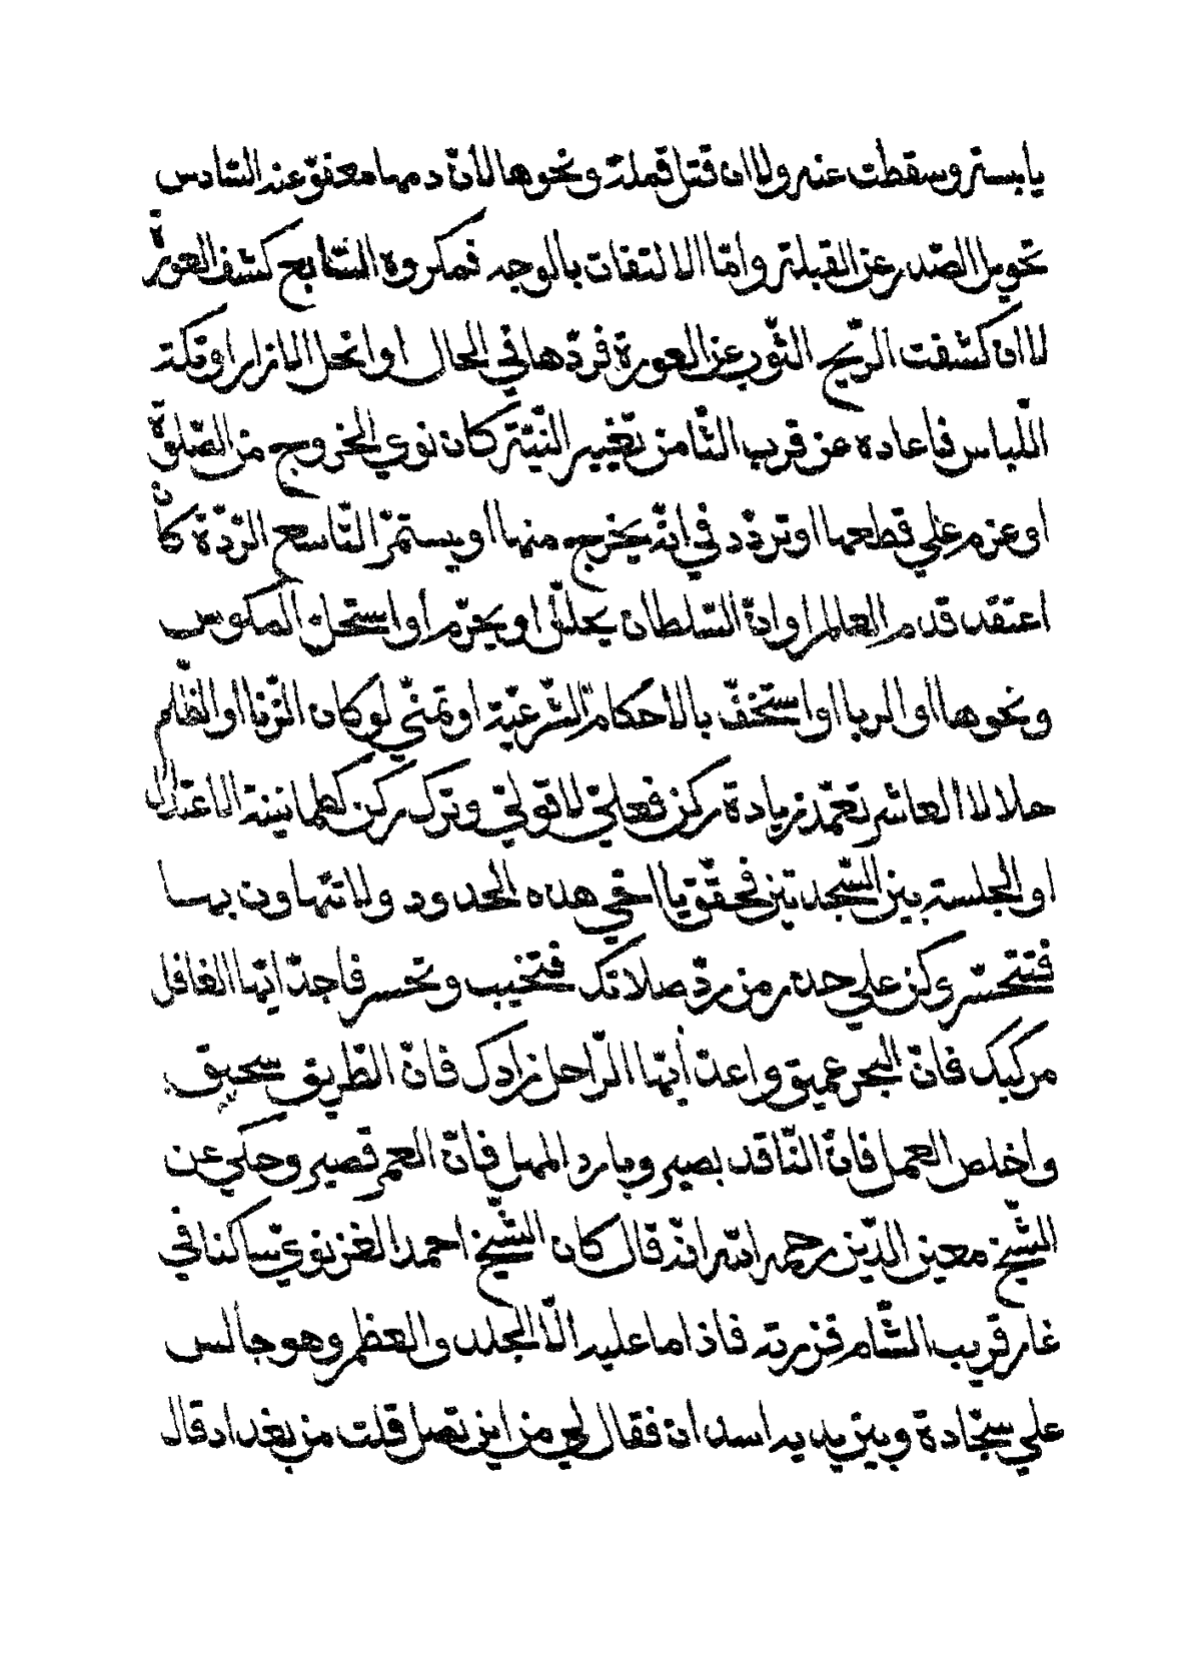 يابسة وسقطت عنه ولا ان قتل قملة ونحوها لأنّ دمها معفوّ عنه السّادس
تحويل الصّدر عن القبلة وامّا الالتفات بالوجه فمكروه السّابع كشف العورة
لا ان كشفت الرّيح الثّوب عن العورة فردّها في الحال او انحلّ الازار او تكة
اللّباس فاعاده عن قرب الثّامن تغيير النّيّة كان نوي الخروج من الصّلوة
او عزم علي قطعها او تردّد في انّه يخرج منها او يستمرّ التّاسع الرّدّة كان
اعتقد قدم العالم او انّ السّلطان يحلّل او يحرّم أو استحلّ المكوس
ونحوها او الربا او استخفّ بالاحكام الشّرعيّة او تمنّي لو كان الزّنا او الظّلم
حلالا العاشر تعمّد زيادة ركن فعليّ لا قوليّ وترك ركن كطمانينة الاعتدال
او الجلسة بين السّجدتين فحقّق يا اخي هذه الحدود ولا تتهاون بها
فتتحسّر وكن علي حذر من ردّ صلاتك فتخيب وتخسر فاجدّ ايّها الغافل
مركبك فانّ البحر عميق واعدّ أيّها الرّاحل زادك فانّ الطّريق سحيق
واخلص العمل فانّ النّاقد بصير وبادر المهل فانّ العمر قصير وحكي عن
الشّيخ معين الدّين رحمه الله انّه قال كان الشّيخ احمد الغزنويّ ساكنا في
غار قريب الشّام فزرته فاذا ما عليه الّا الجلد والعظم وهو جالس
علي سجّادة وبين يديه اسدان فقال لي من اين تصل قلت من بغداد قال